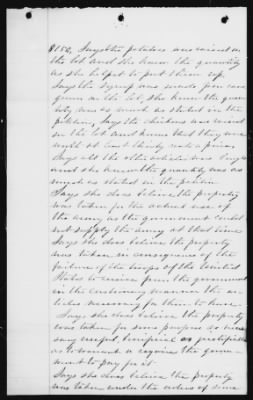 $150, Says the potatoes were raised on
the lot and she knew the quantity
as she helped to put them up,
Says the syrup was made from cane
grown on the lot, she knew the quan-
tity was as much as stated in the
petition, Says the chickens were raised
on the lot and knows that they were
worth at least thirty cents a piece,
Says all the other articles was bought
and she knew the quantity was as
much as stated in the petition
Says she does believe the property
was taken for the actual use of
the army as the government could
not supply the army at that time
Says she does believe the property
was taken in consequence of the
failure of the troops of the United
States to receive from the government
in the customary manner the ar-
ticles necessary for them to have.
Says she does believe the property
was taken for some purpose so neces-
sary useful beneficial or justifiable
as to warrant or require the govern-
ment to pay for it.
Says she does believe the property
was taken under the orders of some